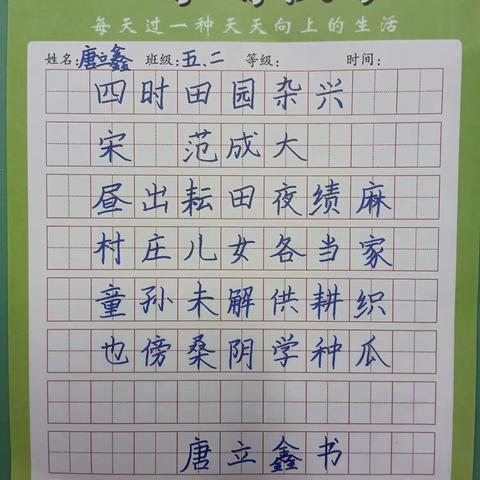 每天过一种天天向上的生活
姓名:唐立鑫 班级:五.二 等级: 时间:
四时田园杂兴
宋 范成大
昼出耘田夜绩麻
村庄儿女各当家
童孙未解供耕织
也傍桑阴学种瓜
唐立鑫书